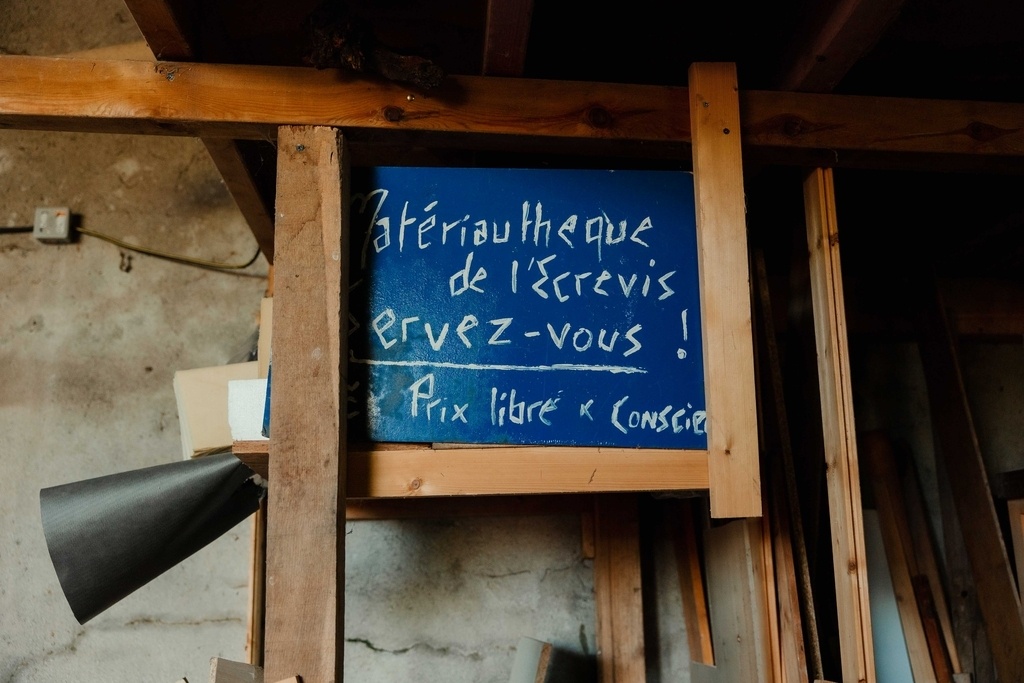 Matériautheque
de l'Ecrevis
ervez-vous !
Prix libre & Conscie